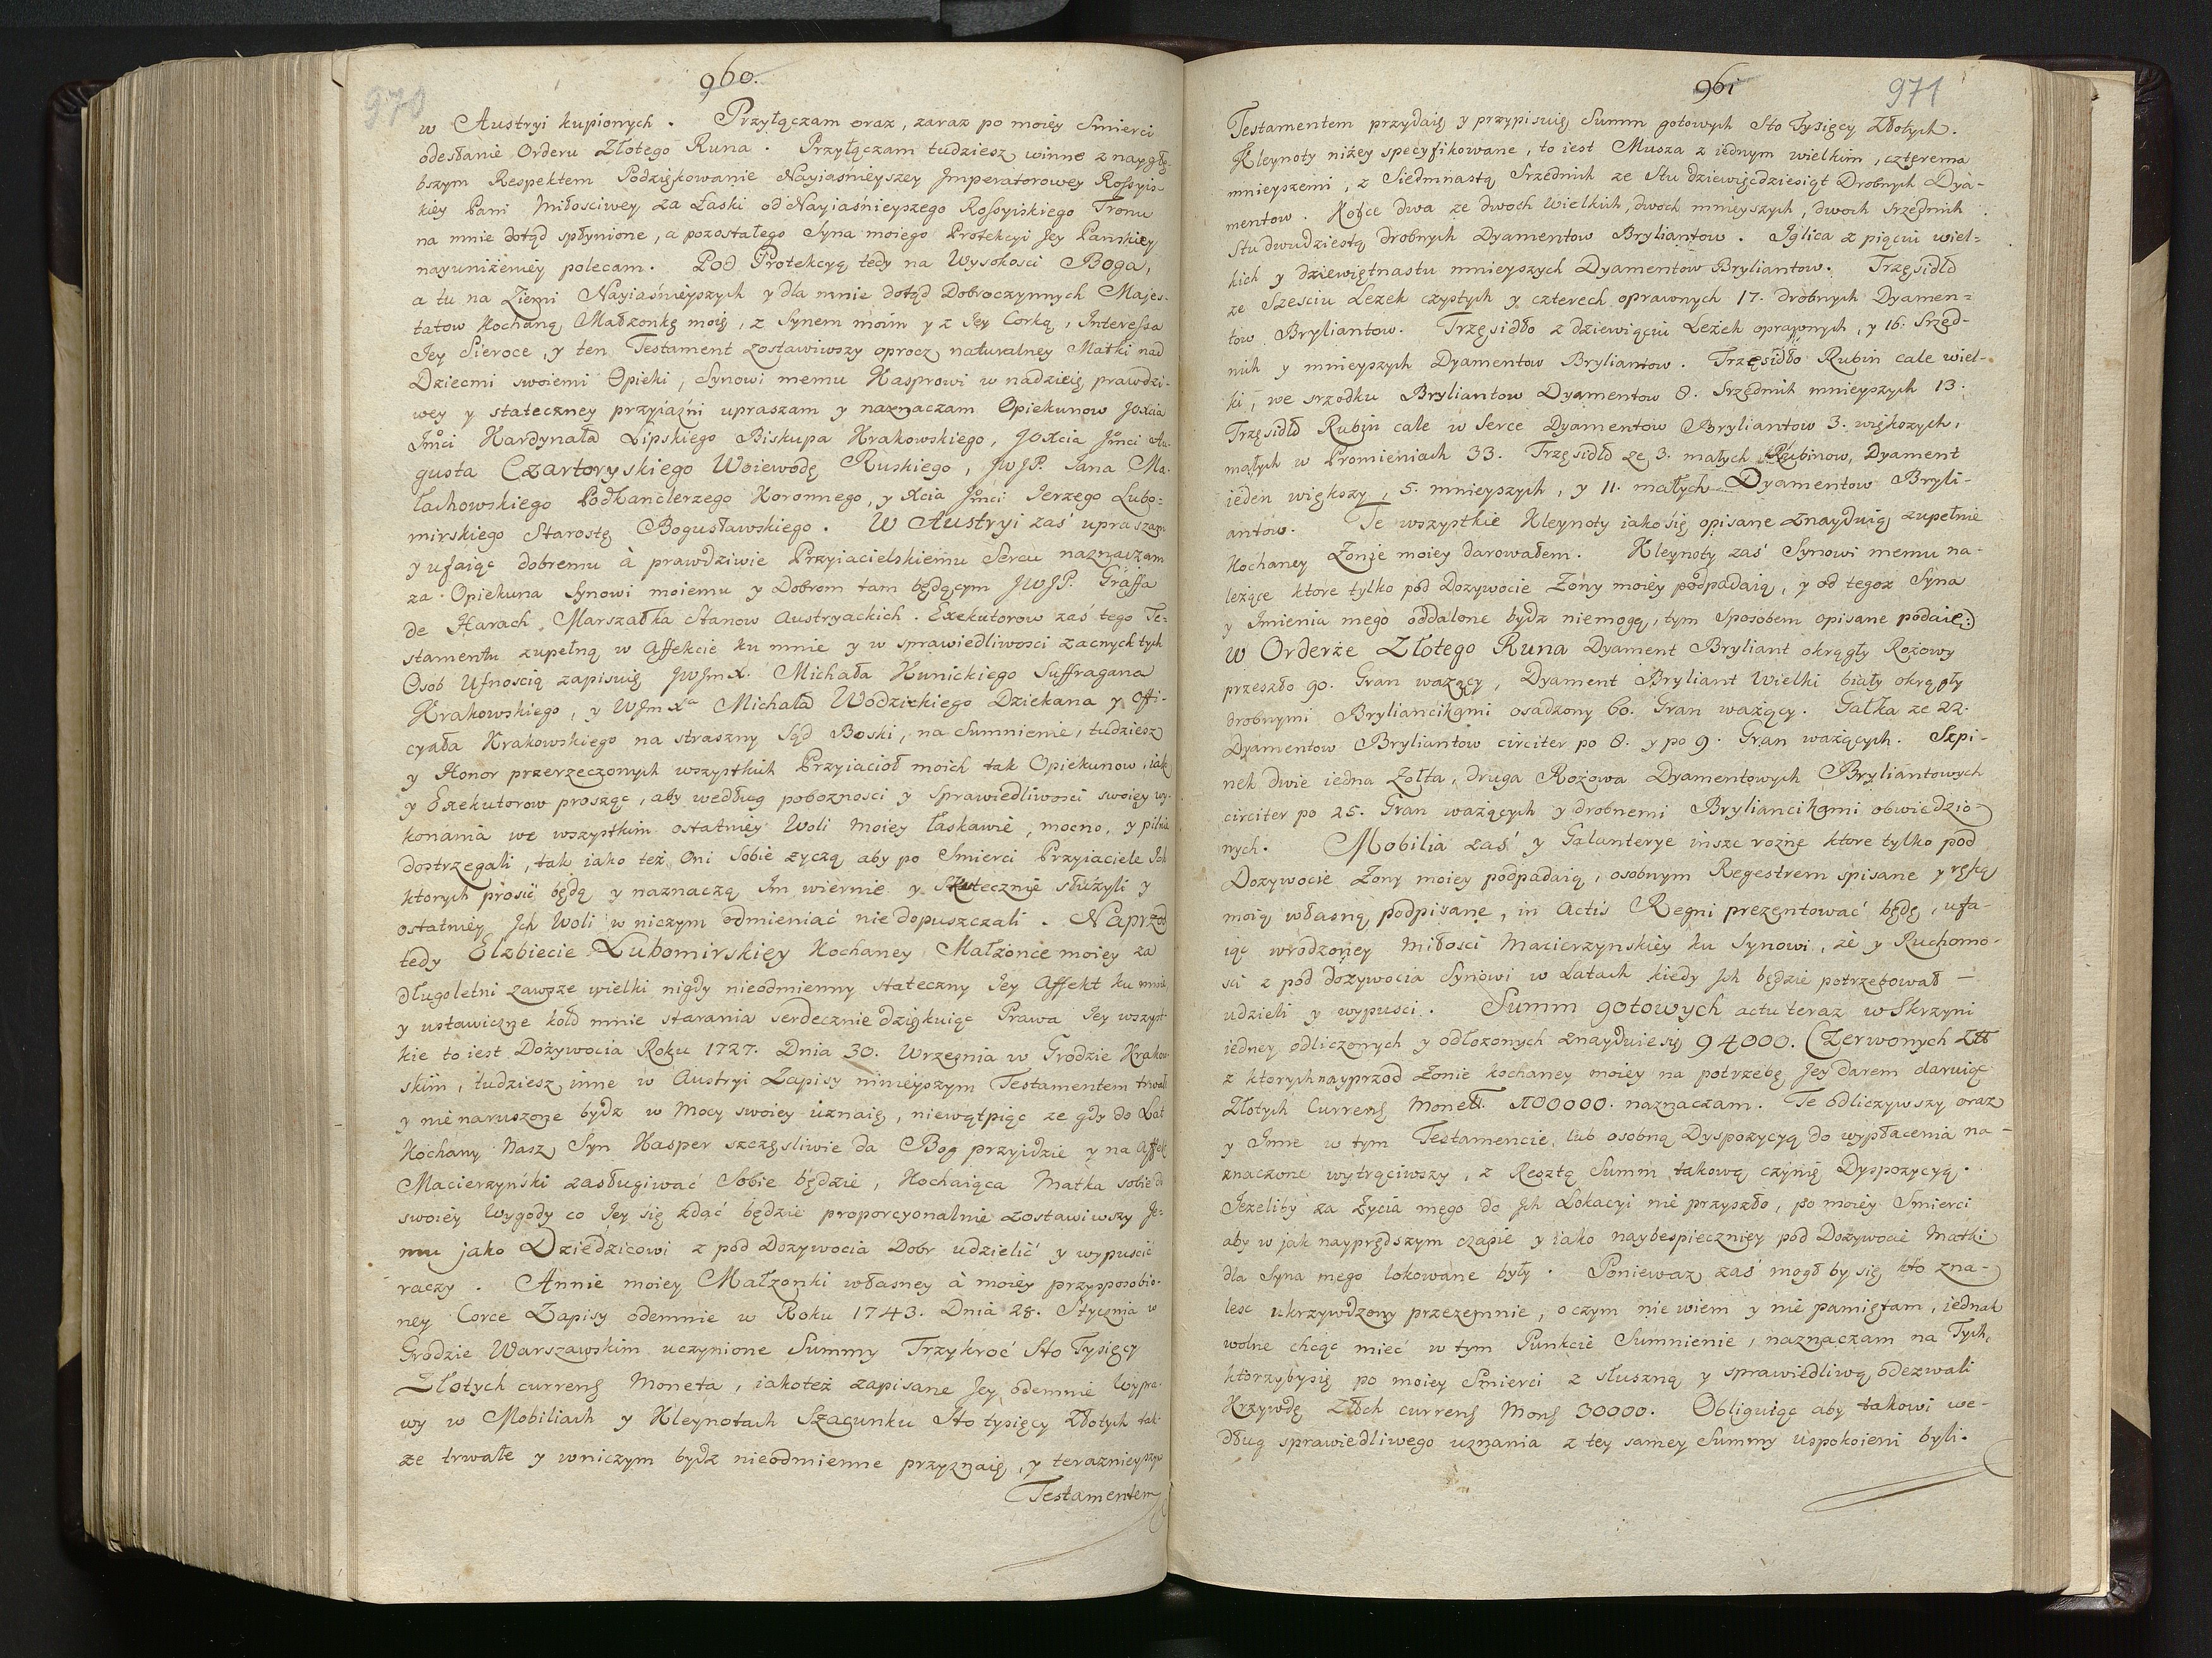 970
960.
w Austryi kupionych. Przyłączam oraz, zaraz po moiey Smierci
odesłanie Orderu Złotego Runa. Przyłączam tudziesz winne z naygłę-
bszym Respektem Podziękowanie Nayiasnieyszey Jmperatorowey Rossyis-
kiey Pani Miłosciwey za Łaski od Nayiaśnieyszego Rossyiskiego Tronu
na mnie dotąd spłynione, a pozostałego Syna moiego Protekcyi Jey Pańskiey
nayuniżeniey polecam. Pod Protekcyą tedy na Wysokosci Boga,
a tu na Ziemi Nayiaśnieyszych y dla mnie dotąd Dobroczynnych Majes-
tatow Kochaną Małzonkę moię, z Synem moim y z Jey Corką, Interessa
Jey Sieroce, y ten Testament zostawiwszy oprocz naturalney Matki nad
Dziecmi swoiemi Opieki, Synowi memu Kasprowi w nadzieię prawdzi-
wey y stateczney przyiaźni upraszam y naznaczam Opiekunow JoXcia
Jmci Kardynała Lipskiego Biskupa Krakowskiego, JOXcia Jmci Au-
gusta Czartoryskiego Woiewodę Ruskiego, JWJP. Jana Ma-
łachowskiego Podkanclerzego Koronnego, y Xcia Jmci Jerzego Lubo=
mirskiego Starostę Bogusławskiego. W Austryi zaś upraszam
y ufaiąc dobremu à prawdziwie Przyiacielskiemu Sercu naznaczam
za Opiekuna Synowi moiemu y Dobrom tam będącym JWJP. Graffa
de Harach Marszałka Stanow Austryackich. Exekutorow zaś tego Te=
stamentu zupełną w Affekcie ku mnie y w sprawiedliwosci zacnych tych
Osob Ufnoscią zapisuię JWJmX. Michała Kunickiego Suffragana
Krakowskiego, y WJmXa Michała Wodzickiego Dziekana y Offi-
cyała Krakowskiego na straszny Sąd Boski, na Sumnienie, tudziesz
y Honor przerzeczonych wszystkich Przyiacioł moich tak Opiekunow, iak
y Exekutorow prosząc, aby według pobozności y Sprawiedliwosci swoiey wy-
konania we wszystkim ostatniey Woli moiey łaskawie, mocno, y pilnie
dostrzegali, tak iako też Oni Sobie zyczą aby po Smierci Przyiaciele Ich
ktorych prosić będą y naznaczą Im wiernie y Skutecznie słuzyli y
ostatniey Ich Woli w niczym odmieniać nie dopuszczali. Naprzod
tedy Elzbiecie Lubomirskiey Kochaney Małzonce moiey za
długoletni zawsze wielki nigdy nieodmienny stateczny Jey Affekt ku mnie,
y ustawiczne koło mnie starania serdecznie dziękuiąc Prawa Jey wszyst-
kie to iest Dożywocia Roku 1727. Dnia 30. Wrzesnia w Grodzie Krakow-
skim, tudziesz inne w Austryi Zapisy ninieyszym Testamentem trwałe
y nie naruszone bydz w Mocy swoiey uznaię, niewątpiąc ze gdy do Lat
Kochany Nasz Syn Kasper szczęsliwie da Bog przyidzie y na Affekt
Macierzyński zasługiwać Sobie będzie, Kochaiąca Matka sobie do
swoiey Wygody co Jey się zdać będzie proporcyonalnie zostawiwszy Je-
mu jako Dziedzicowi z pod Dozywocia Dobr udzielić y wypuscić
raczy. Annie moiey Małzonki własney à moiey przysposobio-
ney Corce Zapisy odemnie w Roku 1743. Dnia 28. Stycznia w
Grodzie Warszawskim uczynione Summy Trzykroć Sto Tysięcy
Złotych currens Moneta, iakoteż zapisane Jey odemnie Wypra-
wy w Mobiliach y Kleynotach Szacunku Sto tysięcy Złotych tak
ze trwałe y wniczym bydz nieodmienne przyznaię, y teraznieyszym
Testamentem
961
971
Testamentem przydaię y przypisuię Summ gotowych Sto Tysięcy Złotych.
Kleynoty niżey specyfikowane, to iest Musza z iednym wielkim, czterema
mnieyszemi, z Siedmnastą Srzednich ze Stu dziewięcdziesiąt Drobnych Dya-
mentow. Kolce dwa ze dwoch Wielkich, dwoch mnieyszych, dwoch Srzednich
Stu dwudziestą drobnych Dyamentow Bryliantow. Iglica z pięciu wiel=
kich y dziewiętnastu mnieyszych Dyamentow Bryliantow. Trzęsidło
ze Szesciu Lezek czystych y czterech oprawnych 17. drobnych Dyamen=
tow Bryliantow. Trzęsidło z dziewięciu Lezek oprawnych, y 16. Srzed-
nich y mnieyszych Dyamentow Bryliantow. Trzęsidło Rubin cale wiel-
ki, we srzodku Bryliantow Dyamentow 8. Srzednich mnieyszych 13.
Trzęsidło Rubin cale w Serce Dyamentow Bryliantow 3. większych,
małych w Promieniach 33. Trzęsidło ze 3. małych Rubinow, Dyament
ieden większy, 5. mnieyszych, y 11. małych Dyamentow Bryli-
antow. Te wszystkie Kleynoty iako się opisane znayduią zupełnie
Kochaney Zonie moiey darowałem. Kleynoty zaś Synowi memu na-
leżące ktore tylko pod Dozywocie Zony moiey podpadaią, y od tegoz Syna
y Imienia mego oddalone bydz niemogą, tym Sposobem opisane podaię:
W Orderze Złotego Runa Dyament Bryliant okrągły Rożowy
przeszło 90. Gran wazący, Dyament Bryliant Wielki biały okrągły
drobnymi Bryliancikami osadzony 60. Gran ważący. Gałka ze 22.
Dyamentow Bryliantow circiter po 8. y po 9. Gran ważących. Szpi-
nek dwie iedna Zołta, druga Rożowa Dyamentowych Bryliantowych
circiter po 25. Gran ważących y drobnemi Bryliancikami obwiedzio-
nych. Mobilia zaś y Galanterye insze rożne ktore tylko pod
Dozywocie Zony moiey podpadaią, osobnym Regestrem spisane y ręką
moią własną podpisane, in Actis Regni prezentować będę, ufa-
iąc wrodzoney miłosci Macierzynskiey ku Synowi, ze y Ruchomo-
sci z pod dożywocia Synowi w Latach kiedy Ich będzie potrzebował —
udzieli y wypusci. Summ gotowych actu teraz w Skrzyni
iedney odliczonych y odłozonych znayduie się 94000. Czerwonych Złł
z ktorych nayprzod Zonie kochaney moiey na potrzebę Jey darem daruię
Złotych Currens Monett. 100000. naznaczam. Te odliczywszy oraz
y Inne w tym Testamencie, lub osobną Dyspozycyą do wypłacenia na-
znaczone wytrąciwszy, z Resztą Summ takową czynię Dyspozycyą.
Jezeliby za życia mego do Ich Lokacyi nie przyszło, po moiey Smierci
aby w jak nayprędszym czasie y iako naybespieczniey pod Dożywocie Matki
dla Syna mego lokowane były. Poniewaz zaś mogł by się kto zna-
lesc ukrzywdzony przezemnie, o czym nie wiem y nie pamiętam, iednak
wolne chcąc mieć w tym Punkcie Sumnienie, naznaczam na Tych,
ktorzybysię po moiey Smierci z słuszną y sprawiedliwą odezwali
Krzywdę Złłch currens Mons 30000. Obliguiąc aby takowi we-
dług sprawiedliwego uznania z tey samey Summy uspokoieni byli.